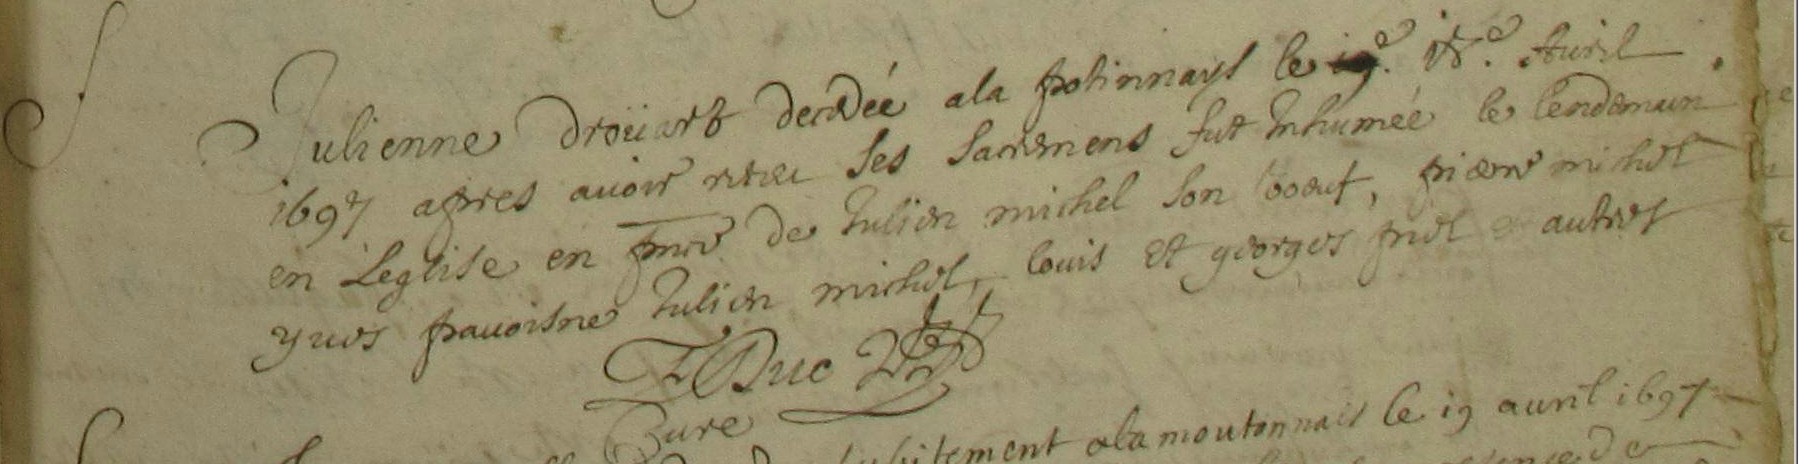 Julienne Droüart decedée a la potinnays le 18e. Avril
1697 apres avoir receu ses sacremens fut Inhumée le lendemain
en L'eglise en pnce de Julien michel son boeuf, pierre michel
yves pavoisne Julien michel, louis Et georges priel autres
F Duc
Cure
subitement a la moutonnais le 19 avril 1697